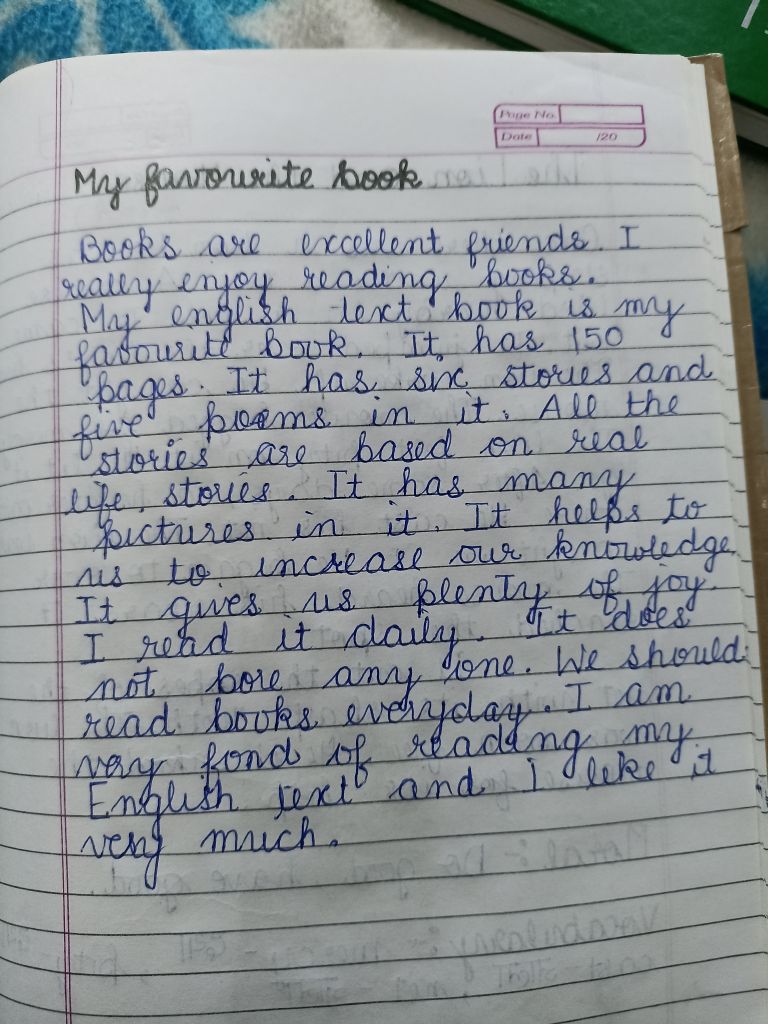 Page No.
Date /20
My favourite book
Books are excellent friends. I
really enjoy reading books.
My english text book is my
favourite book. It has 150
pages. It has six stories and
five poems in it. All the
stories are based on real
life stories. It has many
pictures in it. It helps to
us to increase our knowledge
It gives us plenty of joy.
I read it daily. It does
not bore any one. We should
read books everyday. I am
very fond of reading my
English text and I like it
very much.